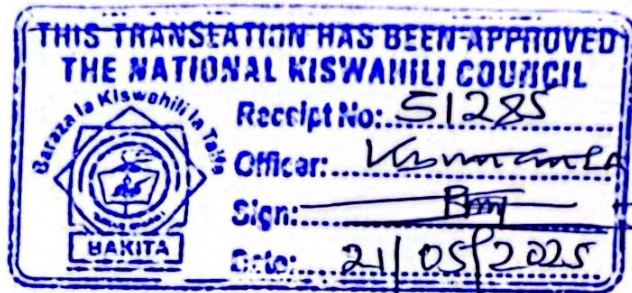 THIS TRANSLATION HAS BEEN APPROVED
THE NATIONAL KISWAHILI COUNCIL
Baraza la Kiswahili la Taifa
BAKITA
Receipt No: 51285
Officer:
Sign:
Date: 21/05/2025